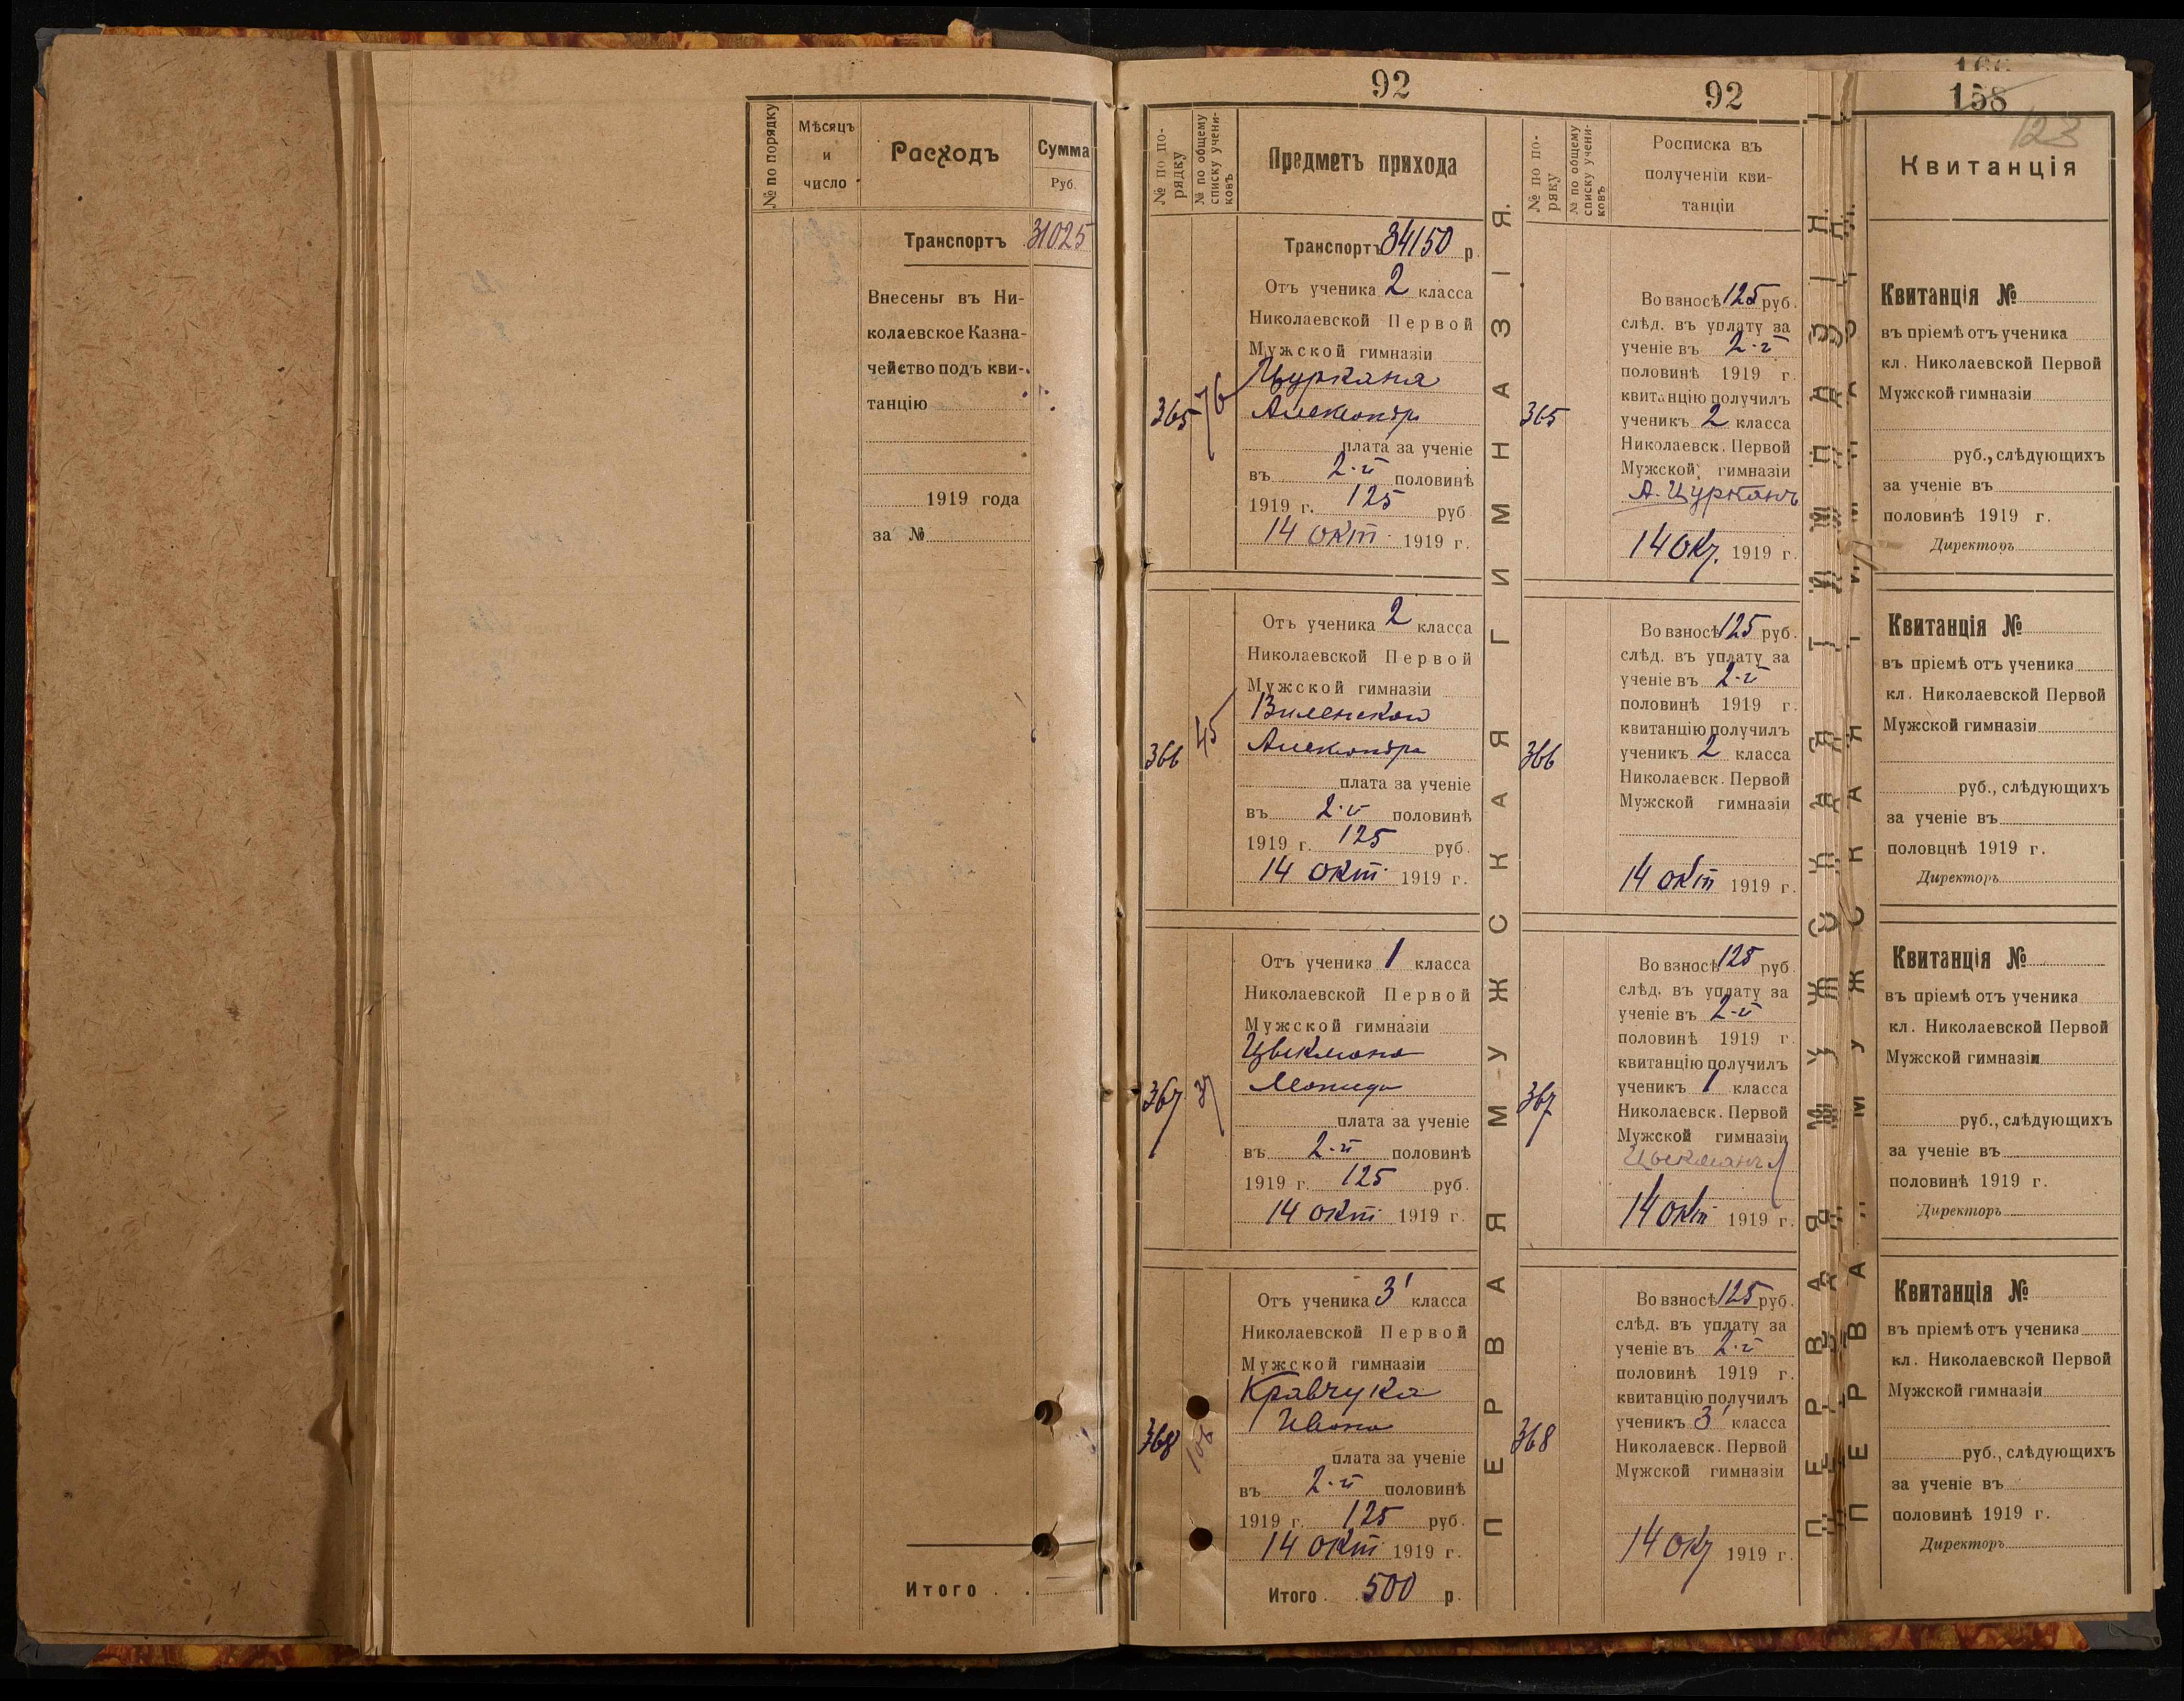 № по порядку
Мѣсяцъ
и
число
Расходъ
Сумма
Руб.
Транспортъ 31025
Внесены въ Ни-
колаевское Казна-
чейство подъ кви-
танцію
1919 года
за №
Итого
92
№ по по-
рядку
№ по общему
списку учени-
ковъ
Предметъ прихода
Транспортъ 34150 р.
Отъ ученика 2 класса
Николаевской Первой
Мужской гимназіи
365 76
Цуркана
Александр
плата за ученіе
въ 2-й половинѣ
1919 г. 125 руб.
14 окт 1919 г.
Отъ ученика 2 класса
Николаевской Первой
Мужской гимназіи
366 45
Виленской
Александра
плата за ученіе
въ 2-й половинѣ
1919 г. 125 руб.
14 окт 1919 г.
Отъ ученика 1 класса
Николаевской Первой
Мужской гимназіи
367
плата за ученіе
въ 2-й половинѣ
1919 г. 125 руб.
14 окт 1919 г.
Отъ ученика 3' класса
Николаевской Первой
Мужской гимназіи
368
Кравчука
Ивана
плата за ученіе
въ 2-й половинѣ
1919 г. 125 руб.
14 окт 1919 г.
Итого 500 р.
ПЕРВАЯ МУЖСКАЯ ГИМНАЗІЯ.
92
№ по по-
ряку
№ по общему
списку учени-
ковъ
Росписка въ
полученіи кви-
танціи
Во взносѣ 125 руб.
слѣд. въ уплату за
ученіе въ 2-й
половинѣ 1919 г.
квитанцію получилъ
365
ученикъ 2 класса
Николаевск. Первой
Мужской гимназіи
А. Цурканъ
14 ок. 1919 г.
Во взносѣ 125 руб.
слѣд. въ уплату за
ученіе въ 2-й
половинѣ 1919 г.
квитанцію получилъ
366
ученикъ 2 класса
Николаевск. Первой
Мужской гимназіи
14 окт 1919 г.
Во взносѣ 125 руб.
слѣд. въ уплату за
ученіе въ 2-й
половинѣ 1919 г.
квитанцію получилъ
367
ученикъ 1 класса
Николаевск. Первой
Мужской гимназіи
14 окт 1919 г.
Во взносѣ 125 руб.
слѣд. въ уплату за
ученіе въ 2-й
половинѣ 1919 г.
квитанцію получилъ
368
ученикъ 3' класса
Николаевск. Первой
Мужской гимназіи
14 окт 1919 г.
158
123
Квитанція
Квитанція №
въ пріемѣ отъ ученика
кл. Николаевской Первой
Мужской гимназіи
руб., слѣдующихъ
за ученіе въ
половинѣ 1919 г.
Директоръ
Квитанція №
въ пріемѣ отъ ученика
кл. Николаевской Первой
Мужской гимназіи
руб., слѣдующихъ
за ученіе въ
половцнѣ 1919 г.
Директоръ
Квитанція №
въ пріемѣ отъ ученика
кл. Николаевской Первой
Мужской гимназіи
руб., слѣдующихъ
за ученіе въ
половинѣ 1919 г.
Директоръ
Квитанція №
въ пріемѣ отъ ученика
кл. Николаевской Первой
Мужской гимназіи
руб., слѣдующихъ
за ученіе въ
половинѣ 1919 г.
Директоръ